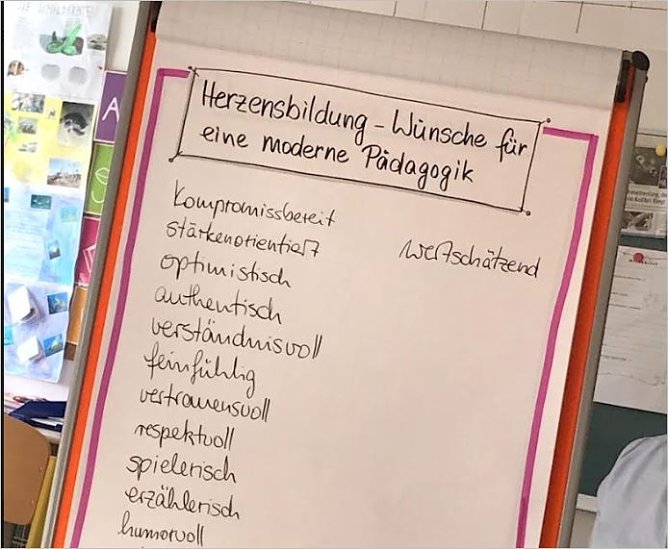 Herzensbildung – Wünsche für
eine moderne Pädagogik
Kompromissbereit
stärkenorientiert
wertschätzend
optimistisch
authentisch
verständnisvoll
feinfühlig
vertrauensvoll
respektvoll
spielerisch
erzählerisch
humorvoll
A